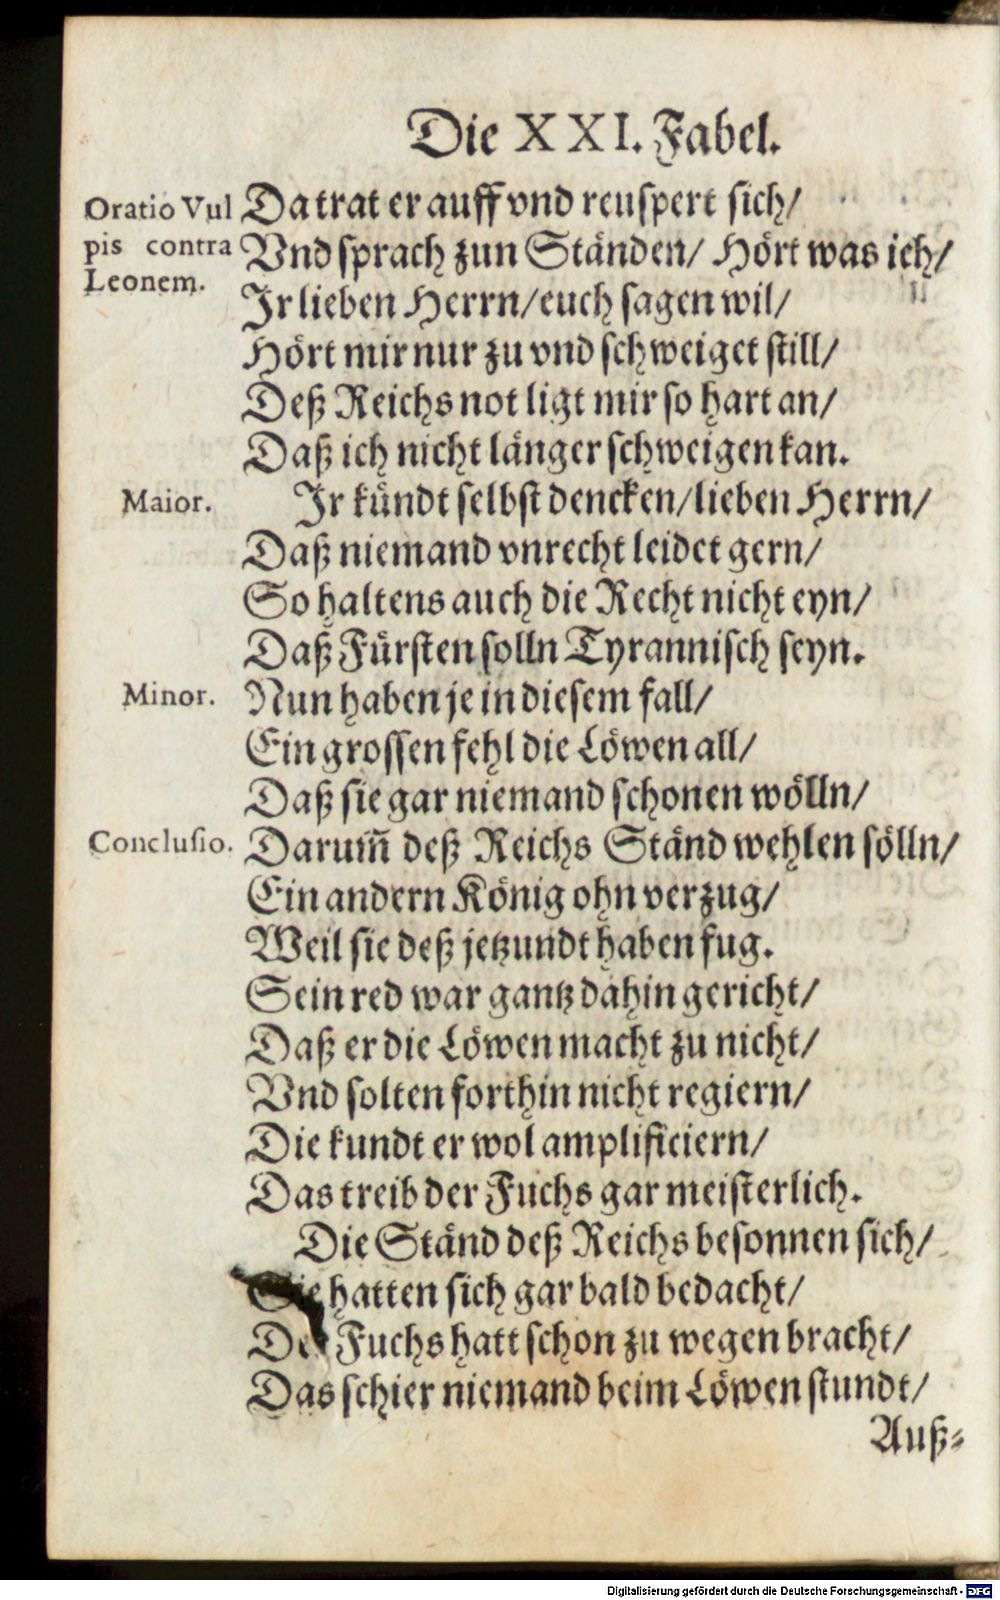 Die XXI. Fabel.
Oratio Vul
pis contra
Leonem.
Da trat er auff vnd reuspert sich/
Vnd sprach zun Ständen/ Hört was ich/
Jr lieben Herrn/ euch sagen wil/
Hört mir nur zu vnd schweiget still/
Deß Reichs not ligt mir so hart an/
Daß ich nicht länger schweigen kan.
Maior.
Jr kündt selbst dencken/ lieben Herrn/
Daß niemand vnrecht leidet gern/
So haltens auch die Recht nicht eyn/
Daß Fürsten solln Tyrannisch seyn.
Minor.
Nun haben je in diesem fall/
Ein grossen fehl die Löwen all/
Daß sie gar niemand schonen wölln/
Conclusio.
Darum̃ deß Reichs Ständ wehlen sölln/
Ein andern König ohn verzug/
Weil sie deß jetzundt haben fug.
Sein red war gantz dahin gericht/
Daß er die Löwen macht zu nicht/
Vnd solten forthin nicht regiern/
Die kundt er wol amplificiern/
Das treib der Fuchs gar meisterlich.
Die Ständ deß Reichs besonnen sich/
Sie hatten sich gar bald bedacht/
Der Fuchs hatt schon zu wegen bracht/
Das schier niemand beim Löwen stundt/
Auß⸗
Digitalisierung gefördert durch die Deutsche Forschungsgemeinschaft - DFG